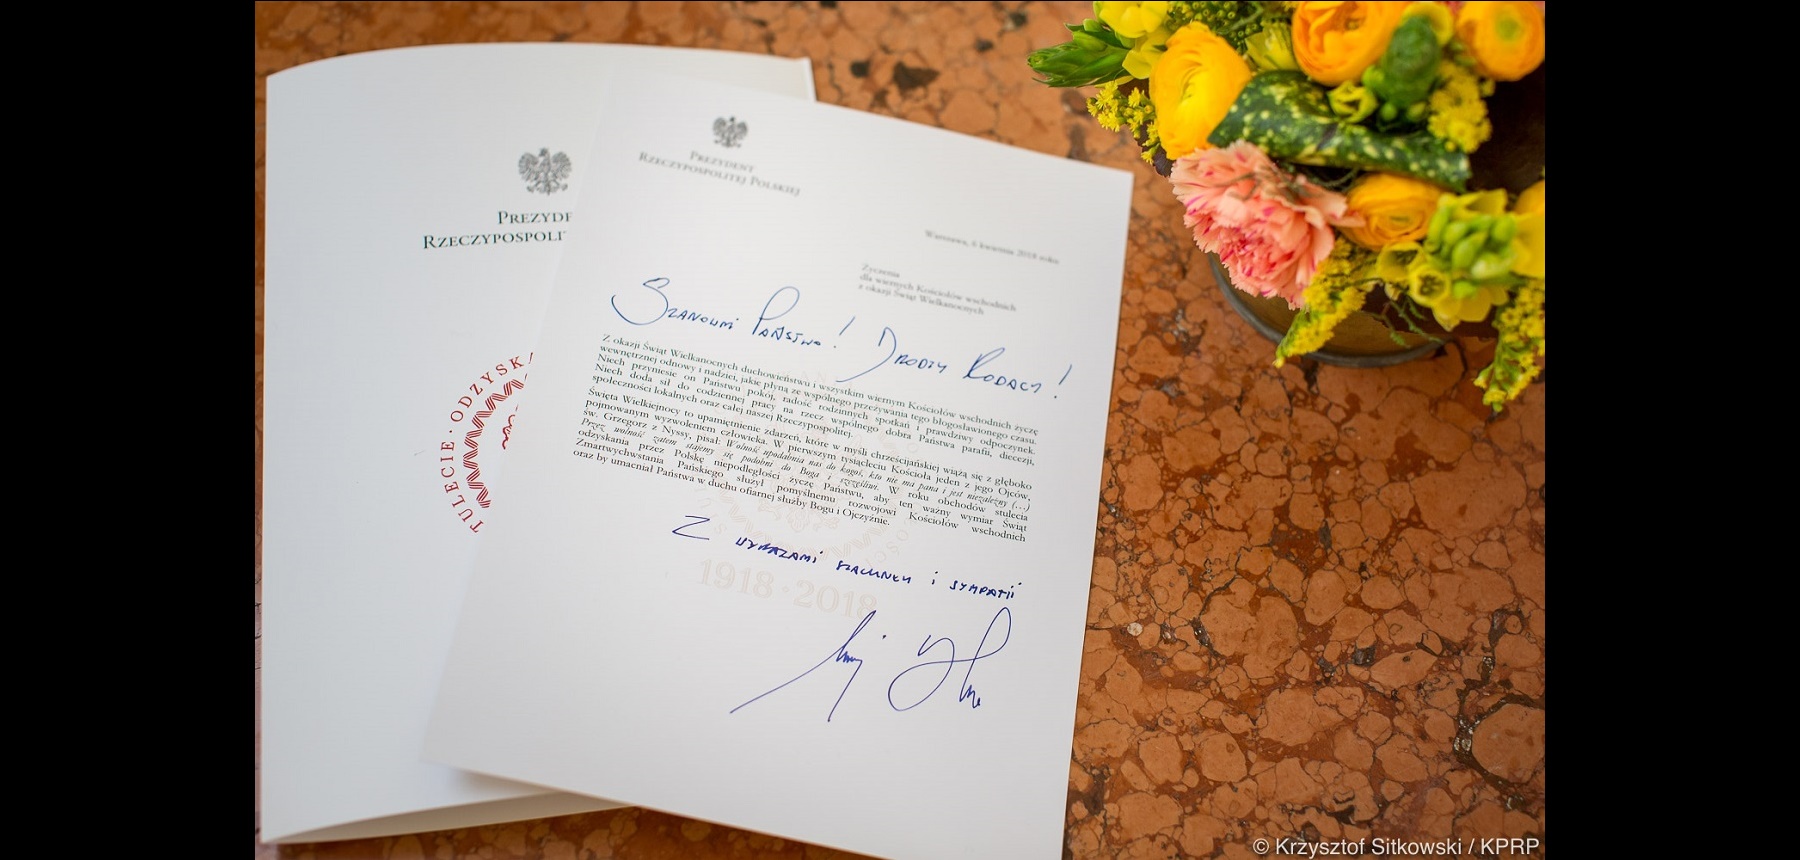 PREZYDE
RZECZYPOSPOLIT
TULECIE · ODZYSK
PREZYDENT
RZECZYPOSPOLITEJ POLSKIEJ
Warszawa, 6 kwietnia 2018 roku
Życzenia
dla wiernych Kościołów wschodnich
z okazji Świąt Wielkanocnych
Szanowni Państwo! Drodzy Rodacy!
Z okazji Świąt Wielkanocnych duchowieństwu i wszystkim wiernym Kościołów wschodnich życzę
wewnętrznej odnowy i nadziei, jakie płyną ze wspólnego przeżywania tego błogosławionego czasu.
Niech przyniesie on Państwu pokój, radość rodzinnych spotkań i prawdziwy odpoczynek.
Niech doda sił do codziennej pracy na rzecz wspólnego dobra Państwa parafii, diecezji,
społeczności lokalnych oraz całej naszej Rzeczypospolitej.
Święta Wielkiejnocy to upamiętnienie zdarzeń, które w myśli chrześcijańskiej wiążą się z głęboko
pojmowanym wyzwoleniem człowieka. W pierwszym tysiącleciu Kościoła jeden z jego Ojców,
św. Grzegorz z Nyssy, pisał: Wolność upodabnia nas do kogoś, kto nie ma pana i jest niezależny (...)
Przez wolność zatem stajemy się podobni do Boga i szczęśliwi. W roku obchodów stulecia
odzyskania przez Polskę niepodległości życzę Państwu, aby ten ważny wymiar Świąt
Zmartwychwstania Pańskiego służył pomyślnemu rozwojowi Kościołów wschodnich
oraz by umacniał Państwa w duchu ofiarnej służby Bogu i Ojczyźnie.
Z wyrazami szacunku i sympatii
1918 · 2018
© Krzysztof Sitkowski / KPRP